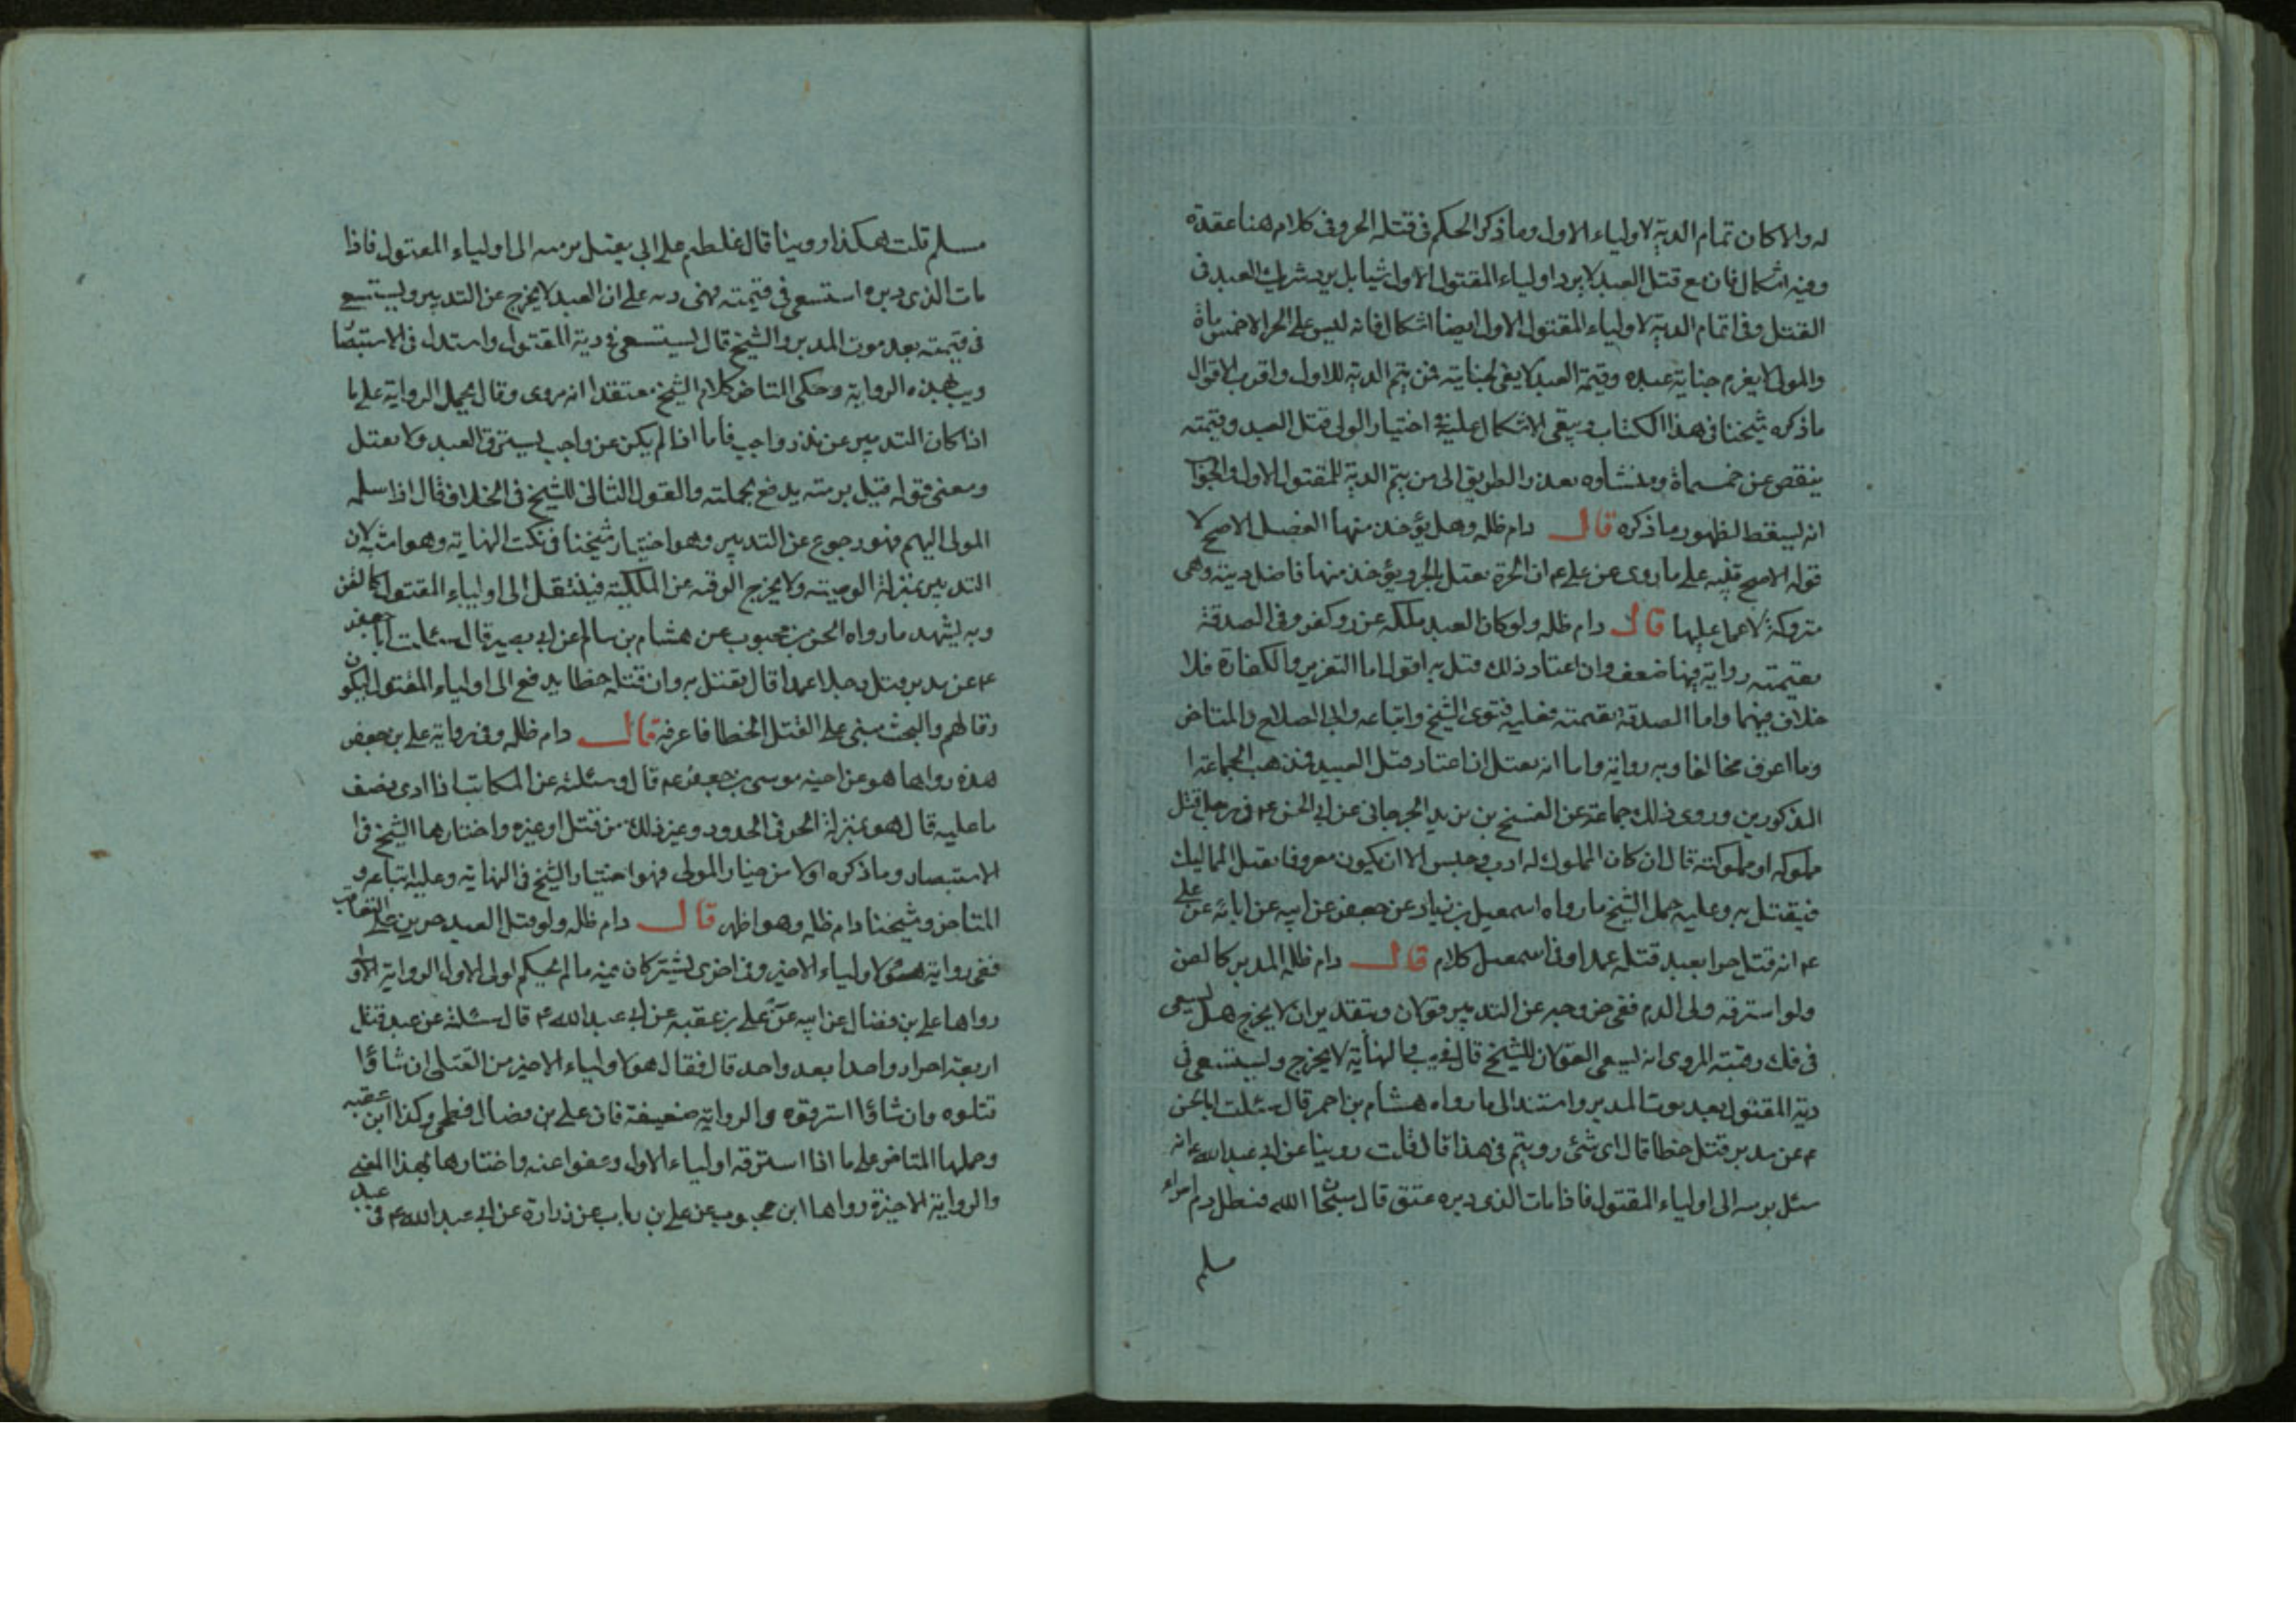 له والا كان تمام الدية لاولياء الاول وما ذكر الحكم فى قتله الحر وفى كلام هنا عقدة
وفيه اشكال فان مع قتل العبد لا يرد اولياء المقتول الاول شيا بل يرد شريك العبد فى
القتل وفى اتمام الدية لاولياء المقتول الاول ايضا اشكال فانه ليس على الحر الا خمس ماة
والمولى لا يغرم جناية عبده وقيمة العبد لا يفى لجنايته فمن يتم الدية للاول واقرب الاقوال
ما ذكره شيخنا فى هذا الكتاب ويبقى الاشكال عليه اختيار الولى قتل العبد وقيمته
ينقص عن خمسماة ومنشأوه تعذر الطريق الى من يتم الدية للمقتول الاول والجواب
انه ليسقط لظهور ما ذكره قال دام ظله وهل يؤخذ منها الفضل الاصح لا
قوله الاصح تنبيه على ما روى عن على عم ان الحرة تقتل بالحر ويؤخذ منها فاضل دينه وهى
متروكة لا عمل عليها قال دام ظله ولو كان العبد ملكه عزر وكفر وفى الصدقة
بقيمته رواية فيها ضعف وان اعتاد ذلك قتل به اقول اما التعزير والكفارة فلا
خلاف فيهما واما الصدقة بقيمته فعليه فتوى الشيخ واتباعه وابى الصلاح والمتاخر
وما اعرف مخالفا وبه رواية واما انه يقتل ان اعتاد قتل العبيد فذهب الجماعة
المذكورين وروى ذلك جماعة عن الفتح بن يزيد الجرجانى عن ابى الحسن عم فى رجل قتل
مملوكه او مملوكته قال ان كان المملوك له ادب وحبس الا ان يكون معروفا بقتل المماليك
فيقتل به وعليه حمل الشيخ ما رواه اسمعيل بن زياد عن جعفر عن ابيه عن ابائه عن على
عم انه قتل حرا بعبد قتله عمدا وفى اسمعيل كلام قال دام ظله المدبر كالقن
ولو استرقه ولى الدم ففى خروجه عن التدبير قولان وبتقدير ان لا يخرج هل يسعى
فى فك رقبته المروى انه ليسعى القولان للشيخ قال فى يب والنهاية لا يخرج وليستسعى فى
دية المقتول بعد موت المدبر واستند الى ما رواه هشام بن احمر قال سئلت ابا
عم عن مدبر قتل خطا قال اى شئ رويتم فى هذا قال قلت روينا عن ابى عبد الله عم انه
سئل برمته الى اولياء المقتول فاذا مات الذى دبره عتق قال سبحان الله فنطل دم امراء
مسلم
مسلم قلت هكذا روينا قال غلطم على ابى يقتل برمته الى اولياء المقتول فاذا
مات الذى دبره استسعى فى قيمته فهى داله على ان العبد لا يخرج عن التدبير وليستسعى
فى قيمته بعد موت المدبر والشيخ قال ليستسعى فى دية المقتول واستدل فى الاستبصا
ويب بهذه الرواية وحكى المتاخر كلام الشيخ معتقدا انه مروى وقال يحمل الرواية على ما
اذا كان التدبير عن نذر واجب فاما اذا لم يكن عن واجب ليسترق العبد ولا يقتل
ومعنى قوله قيل برمته يدفع بجملته والقول الثانى للشيخ فى الخلاف قال اذا سلمه
المولى اليهم فهو رجوع عن التدبير وهو اختيار شيخنا فى نكت النهاية وهو اشبه لان
التدبير بمنزلة الوصيته ولا يخرج الرقبه عن الملكية فينتقل الى اولياء المقتول كالقن
وبه يشهد ما رواه الحسن بن محبوب عن هشام بن سالم عن ابى بصير قال سئلت ابا جعفر
عم عن مدبر قتل رجلا عمدا قال يقتل به وان قتله خطا يدفع الى اولياء المقتول ليكون
رقا لهم والبحث مبنى على القتل الخطا فاعرفه قال دام ظله وفى رواية على بن جعفر
هذه رواها هو عن اخيه موسى بن جعفر عم قال وسئلته عن المكاتب اذا ادى نصف
ما عليه قال هو بمنزلة الحر فى الحدود وغير ذلك من قتل او غيره واختارها الشيخ فى
الاستبصار وما ذكره اولا من خيار المولى فهو اختيار الشيخ فى النهاية وعليه اتباعه و
المتاخر وشيخنا دام ظله وهو اظهر قال دام ظله ولو قتل العبد حرين على التعاقب
ففى رواية هو لاولياء الاخير وفى اخرى يشتركان فيه ما لم يحكم لولى الاول الرواية الاولى
رواها على بن فضال عن ابيه عن على بن عقبه عن ابى عبد الله عم قال سئلته عن عبد قتل
اربعة احرار واحدا بعد واحد قال فقال هو لاولياء الاخير من القتلى ان شاؤا
قتلوه وان شاؤا استرقوه والرواية ضعيفة فان على بن فضال فطحى وكذا ابن عقبه
وحملها المتاخر على ما اذا استرقه اولياء الاول وعفوا عنه واختارها بهذا المعنى
والرواية الاخيرة رواها ابن محبوب عن على بن رياب عن زرارة عن ابى عبد الله عم فى عبد